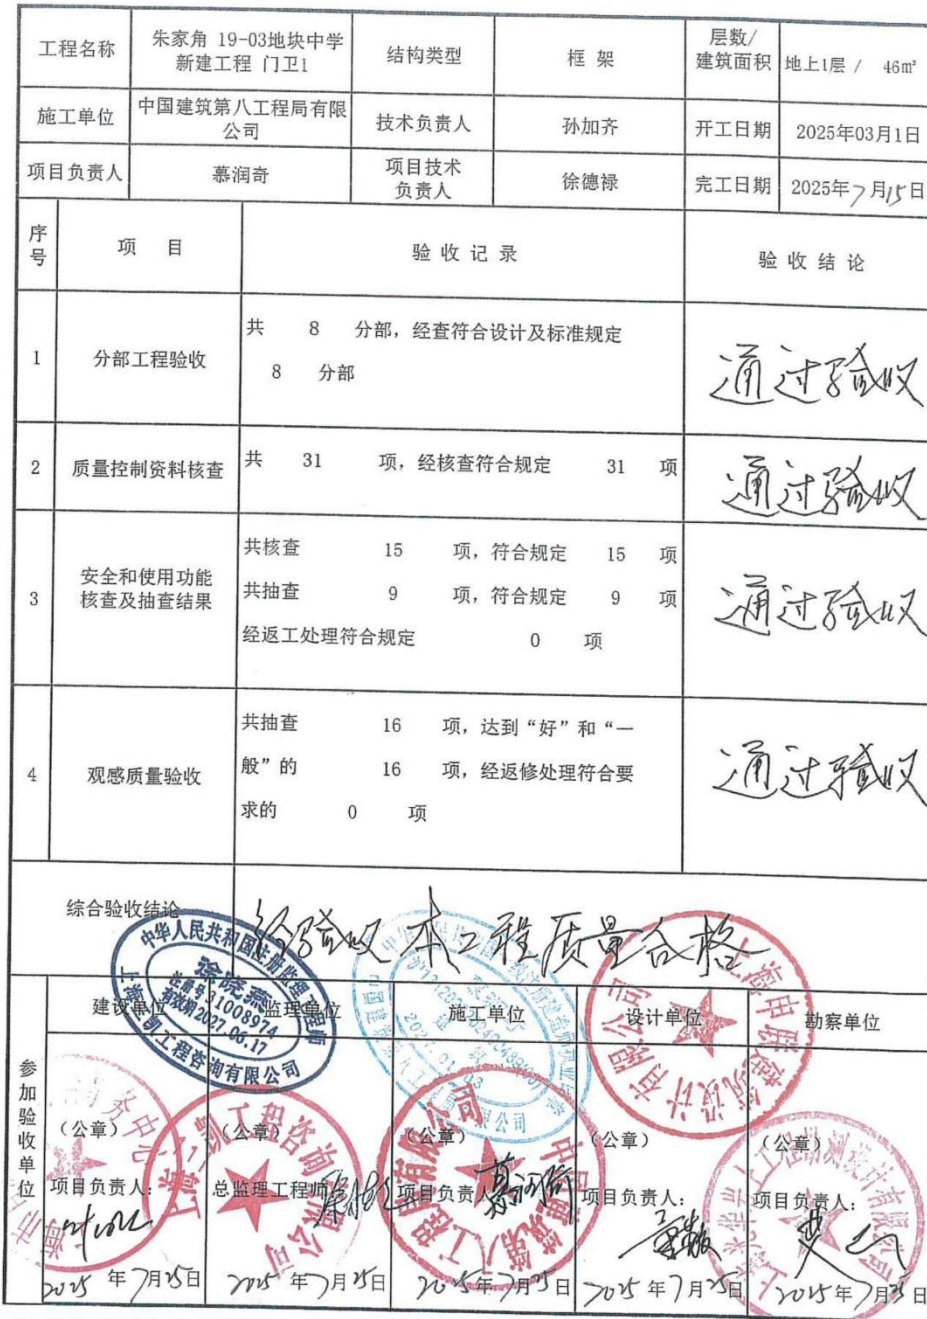 工程名称 朱家角 19-03地块中学新建工程 门卫1 结构类型 框 架 层数/建筑面积 地上1层 / 46㎡
施工单位 中国建筑第八工程局有限公司 技术负责人 孙加齐 开工日期 2025年03月1日
项目负责人 慕润奇 项目技术负责人 徐德禄 完工日期 2025年7月15日
序号 项 目 验 收 记 录 验 收 结 论
1 分部工程验收 共 8 分部，经查符合设计及标准规定
8 分部
通过验收
2 质量控制资料核查 共 31 项，经核查符合规定 31 项 通过验收
3 安全和使用功能核查及抽查结果
共核查 15 项，符合规定 15 项
共抽查 9 项，符合规定 9 项
经返工处理符合规定 0 项
通过验收
4 观感质量验收
共抽查 16 项，达到“好”和“一
般”的 16 项，经返修处理符合要
求的 0 项
通过验收
综合验收结论 经验收本工程质量合格
参加验收单位
建设单位 监理单位 施工单位 设计单位 勘察单位
（公章） （公章） （公章） （公章） （公章）
项目负责人： 总监理工程师 项目负责人 项目负责人： 项目负责人：
2025年7月25日 2025年7月25日 2025年7月25日 2025年7月25日 2025年7月25日
中华人民共和国注册监理工程师
徐晓燕
注册号31008974
有效期2027.06.17
工程咨询有限公司
工程咨询有限公司
中国建筑第八工程局有限公司
上海申联建筑设计有限公司